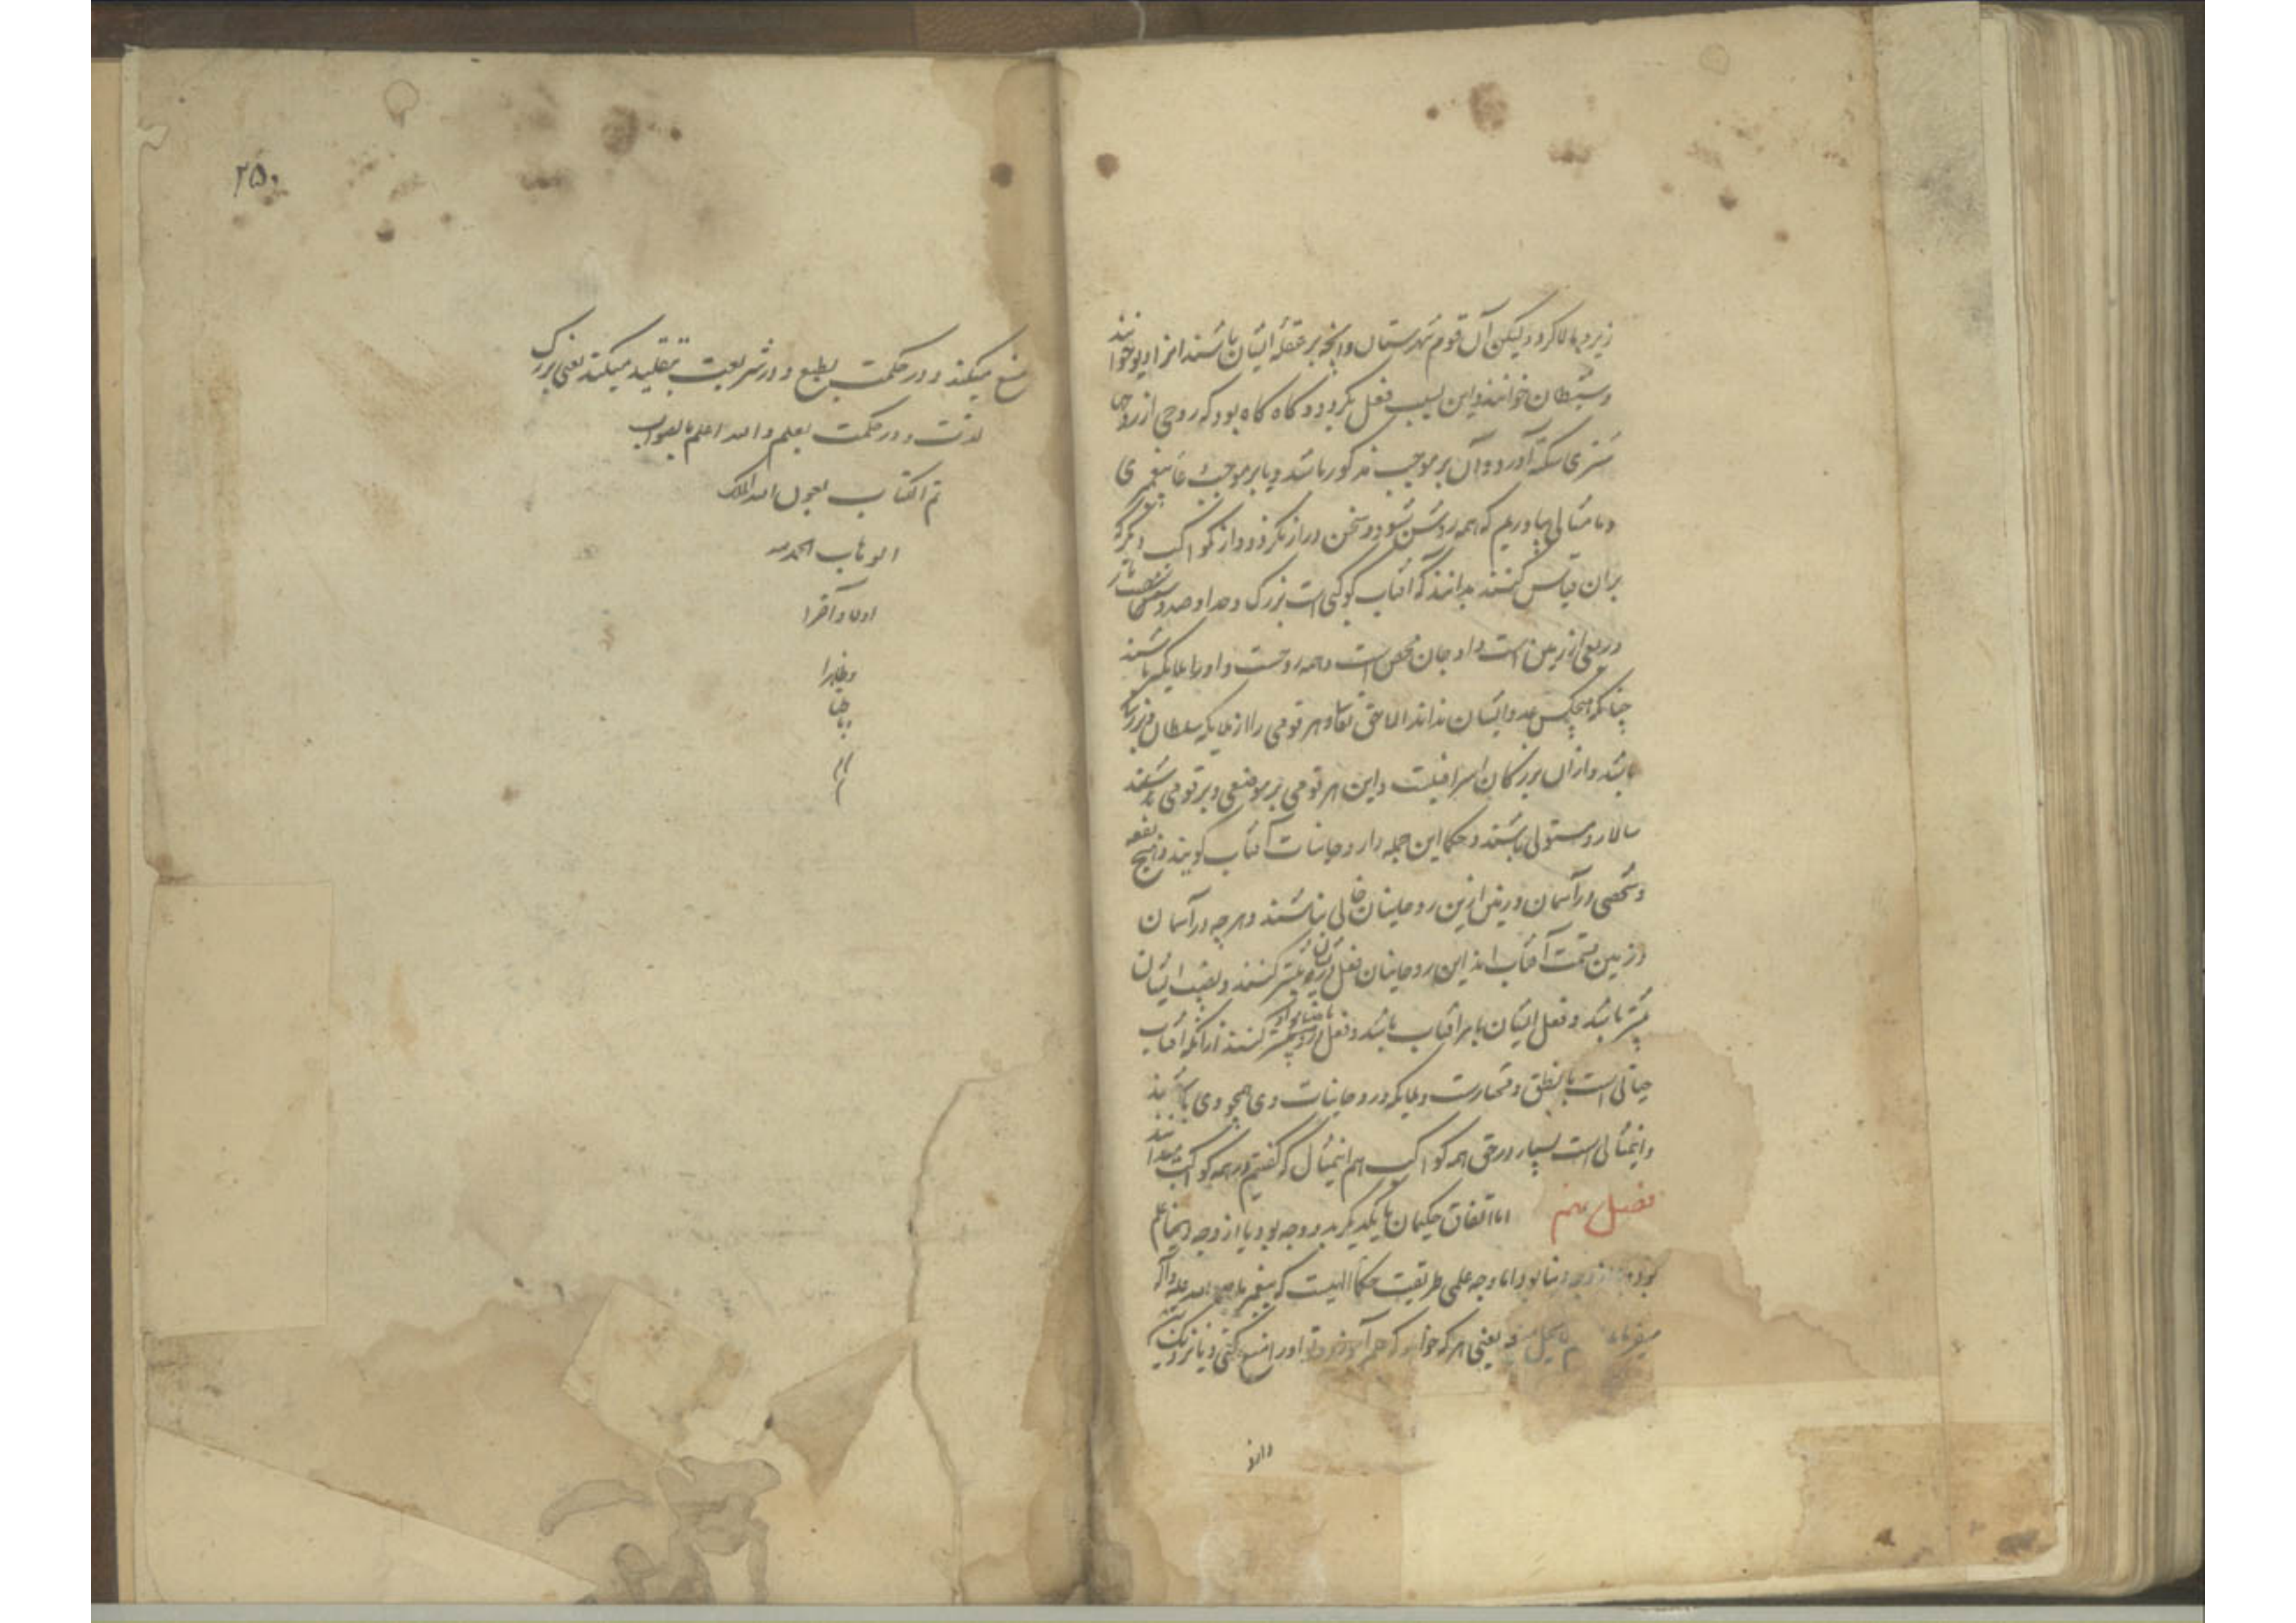 زیر و بالا کرد ولیکن آن قوم شهرستان و آنچه بر عقله ایشان باشند ایزا دیو خوانند
و شیطان خوانند و این بسبب فعل بگردد و گاه گاه بود که روحی از روحی
مشتری آورد و آن بر موجب مذکور باشد و یا بر موجب پیغمبری
و ما مثالی بیاوریم که همه روشن شود و سخن دراز نگردد و از کواکب دیگر
بران قیاس کنند بدانند که آفتاب کوکبی است بزرگ و صد و شصت بار
و ربعی از زمین است و او جان محض است و همه روحست و او را ملایکه باشند
چنانکه هیچکس عدد ایشان نداند الا حق تعالی و هر قومی را از ملایکه سلطان بزرگ
باشد و از آن بزرگان اسرافیلست و این هر قومی بر موضعی و بر قومی باشند
سالار و مستولی باشند و حکما این جمله را روحانیات آفتاب گویند و هیچ بقعه
و شخصی در آسمان و زمین ازین روحانیان خالی نباشند و هر چه در آسمان
و زمین قسمت آفتاب اند این روحانیان فعل بیشتر کنند و بقیت ایشان
بیشتر باشد و فعل ایشان با مر آفتاب باشد و فعل بیشتر کنند از آنکه آفتاب
حیاتی است با نطق و مختارست و ملایکه و روحانیات وی همچو وی باشند
و این مثالی است بسیار در حق همه کواکب هم این مثال که گفتیم در همه کواکب میدانند
فصل نهم اما اتفاق حکیمان با یکدیگر بدو وجه بود یا از وجه علم
بود و یا از وجه دنیا بود اما وجه علمی طریقت حکما اینست که پیغمبر ما صلی الله علیه و آله
میفرماید یعنی هر که خواهد که علم آموزد و تو او را منع کنی و یا نزدیک
دارد
۲۵۰
منع میکند و در حکمت بطبع و در شریعت بتقلید میکند یعنی بزرگ
لذت و در حکمت بعلم و الله اعلم بالصواب
تم الکتاب بعون الله الملک
الوهاب الحمد لله
اولا و آخرا
و ظاهرا
و باطنا
م